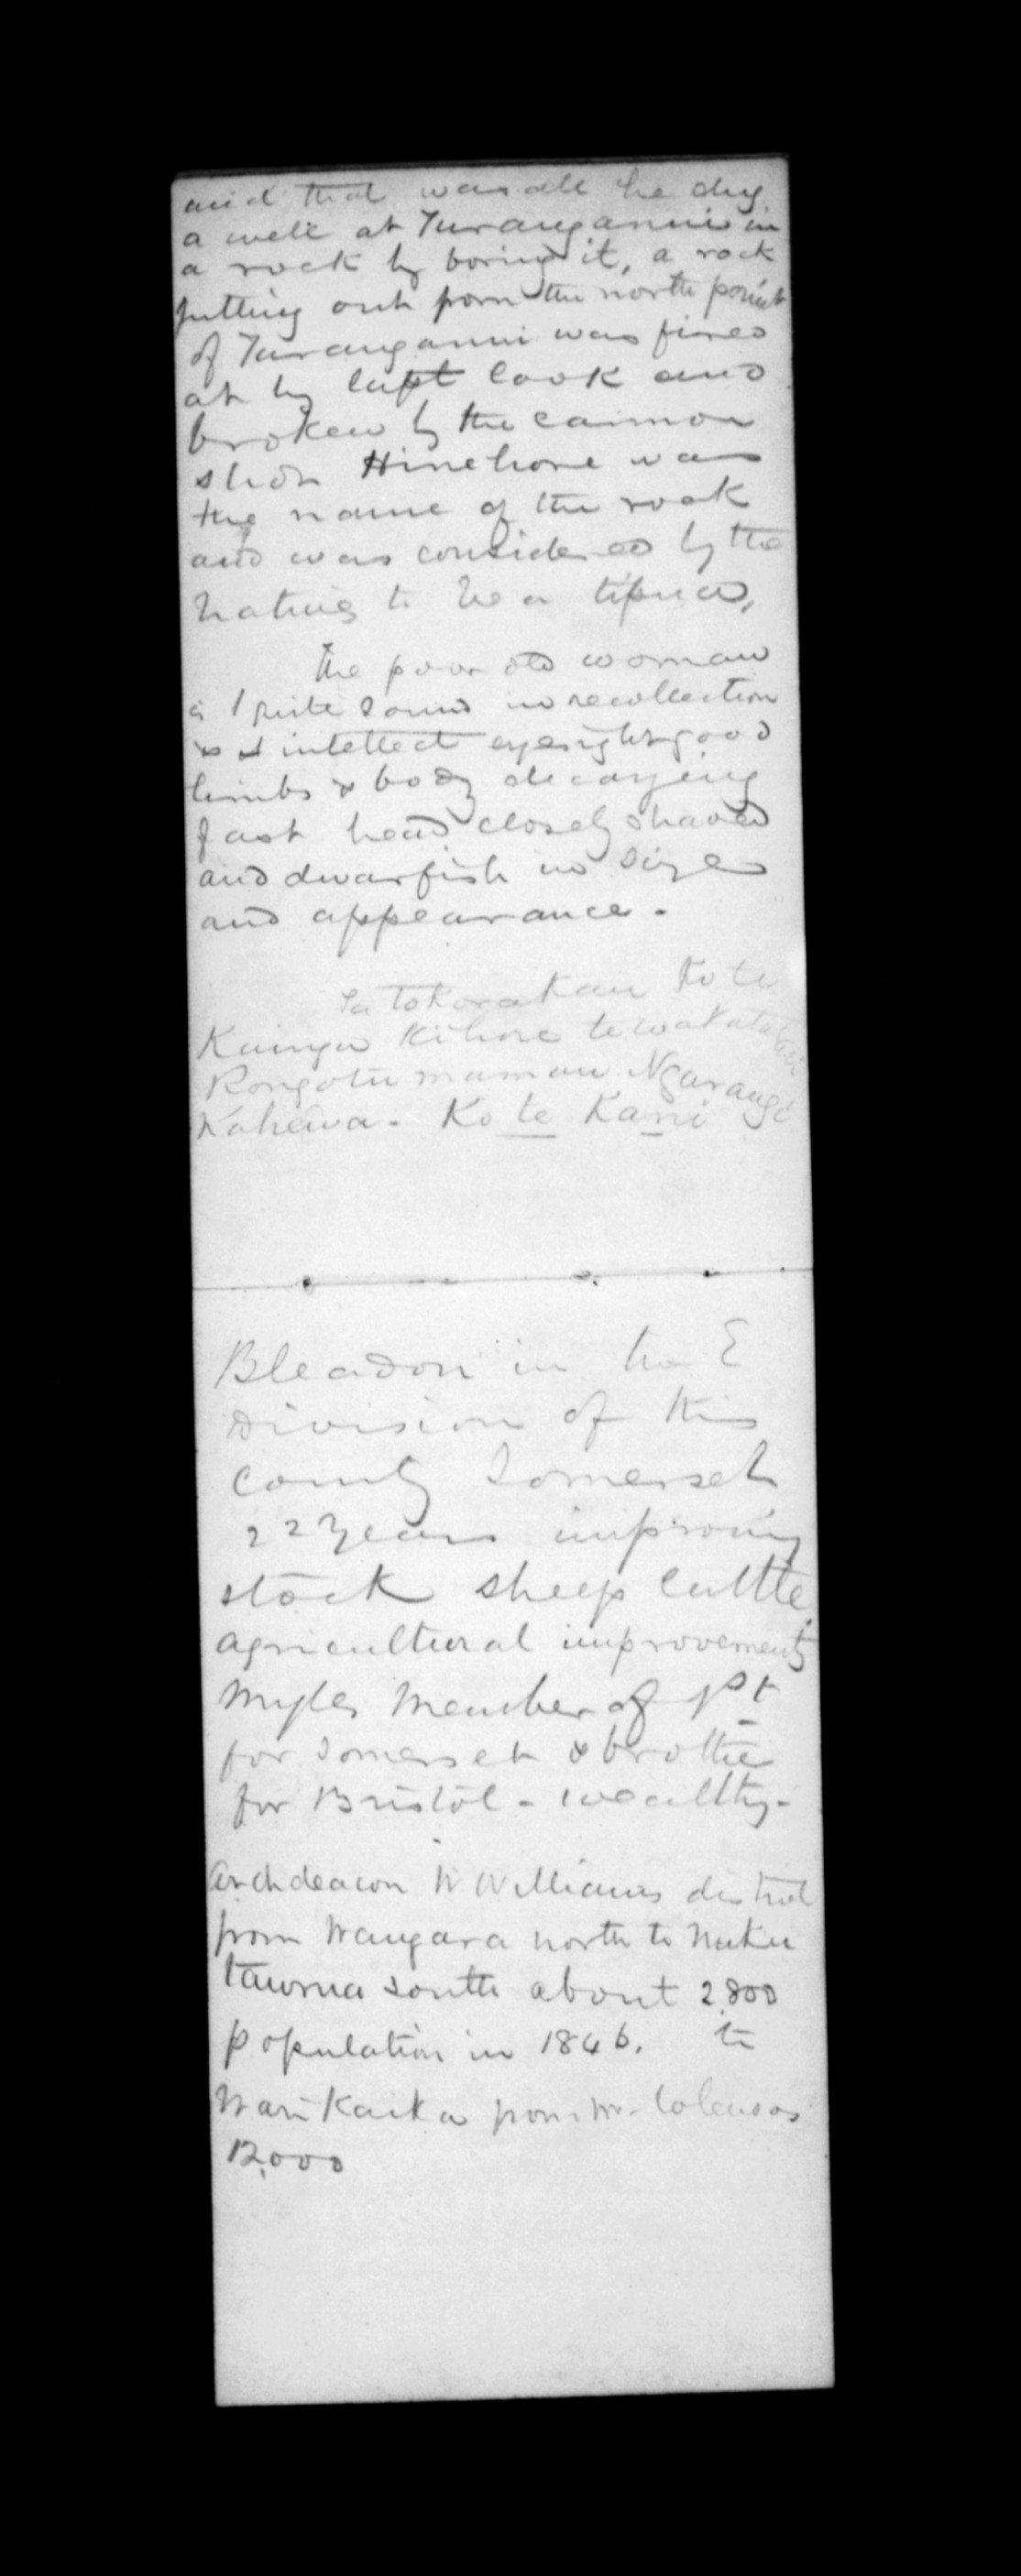 and that was all he dug
a well at Turanganui in
a rock by boring it, a rock
jutting out from the north point
of Turanganui was fired
at by Capt Cook and
broken by the cannon
shot Hinehore was
the name of the rock
and was considered by the
natives to be a tipua,
The poor old woman
is quite sound in recollection
& intellect eyesight good
limbs & body decaying
fast head closely shaved
and dwarfish in size
and appearance.
Ko te
Kainga Kihore
Rongotumamau Ngarangi
Kahewa. Ko te Kani
Bleadon in the E
Division of this
County Somerset
22 years improving
stock sheep cattle
agricultural improvements
Myles Member of Pt
for Somerset & brother
for Bristol - wealthy -
Archdeacon W Williams district
from Wangara north to Nuku
taurua south about 2.800
population in 1846. to
Warikaika from Mr. Colensos
12,000